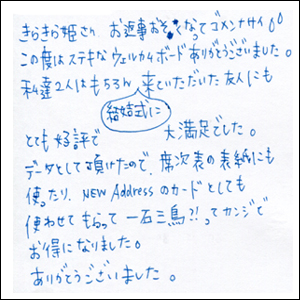 きらきら姫さん お返事おそくなってゴメンナサイ
この度はステキなウェルカムボードありがとうございました。
私達2人はもちろん 来ていただいた友人にも
結婚式に
とても好評で 大満足でした。
データとしても頂けたので、席次表の表紙にも
使ったり、NEW Addressのカードとしても
使わせてもらって 一石三鳥?!ってカンジで
お得になりました。
ありがとうございました。